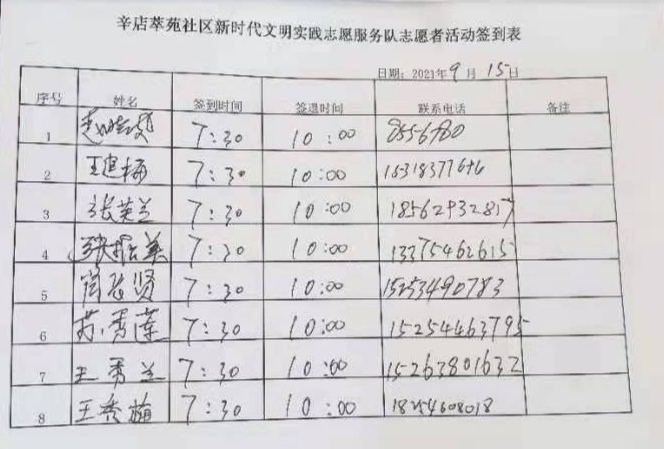 辛店萃苑社区新时代文明实践志愿服务队志愿者活动签到表
日期：2021年9月15日
序号 姓名 签到时间 签退时间 联系电话 备注
1 7:30 10:00 8556780
2 王建梅 7:30 10:00
3 张英兰 7:30 10:00 18562932817
4 7:30 10:00 13375462615
5 7:30 10:00 15253490783
6 苏秀莲 7:30 10:00 15254463795
7 王秀兰 7:30 10:00 15263801632
8 王秀梅 7:30 10:00 18254608018